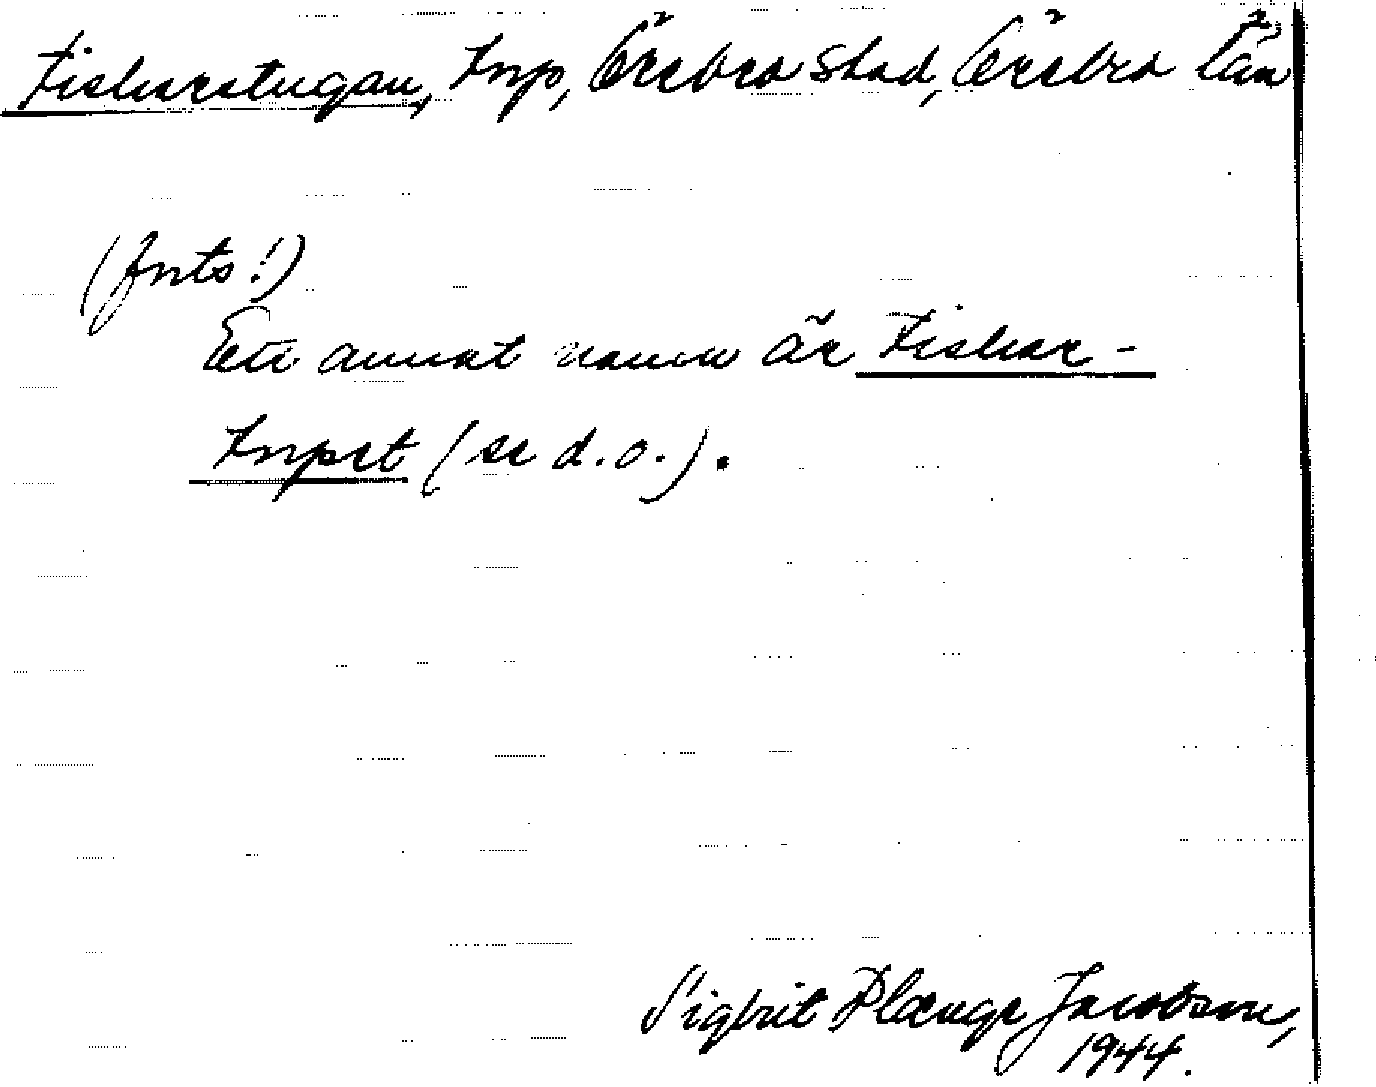 Fiskarstugan, Torp, Örebro stad, Örebro län
(forts!)
Ett annat namn är Fiskar-
torpet (se d.o.).
Sigbrit Plænge Jacobson,
1944.